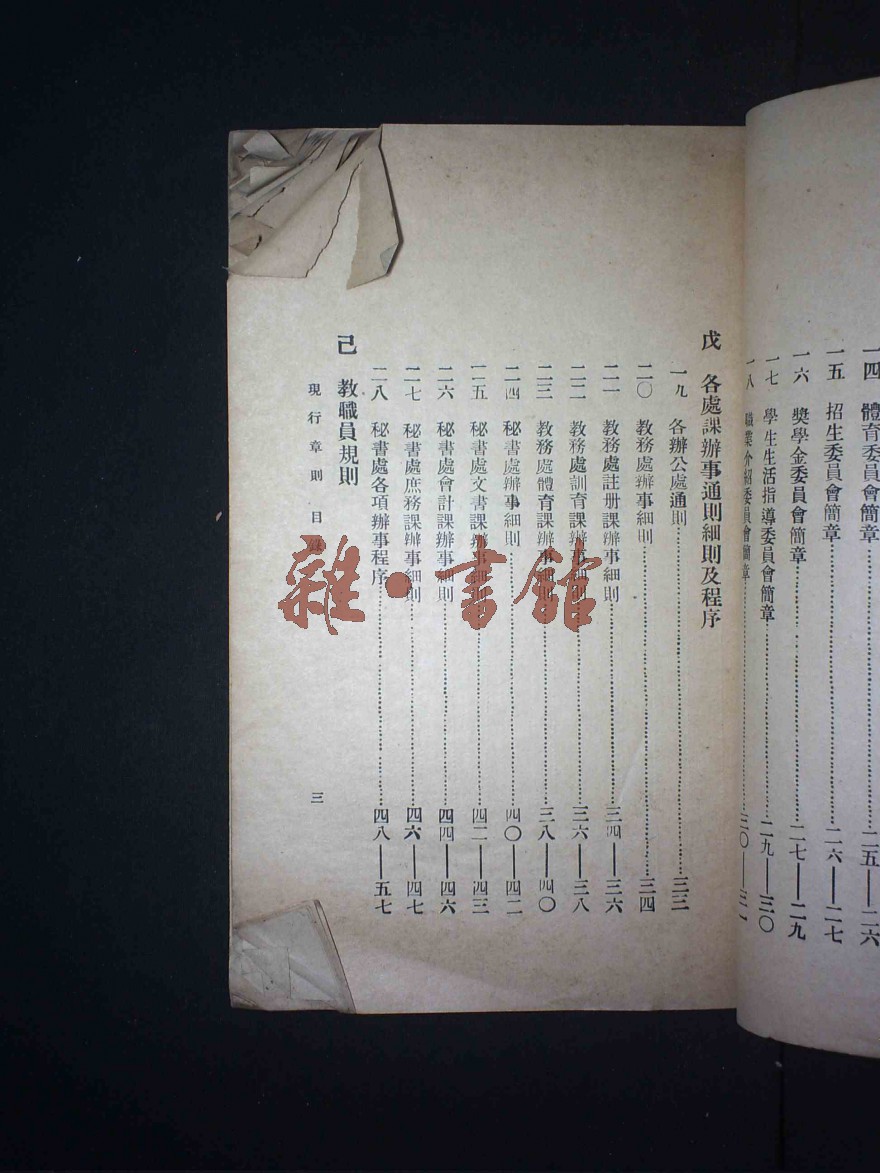 一四　體育委員會簡章……二五——二六
一五　招生委員會簡章……二六——二七
一六　奬學金委員會簡章……二七——二九
一七　學生生活指導委員會簡章……二九——三〇
一八　職業介紹委員會簡章……三〇——三二
戊　各處課辦事通則細則及程序
一九　各辦公處通則……三三
二〇　教務處辦事細則……三四
二一　教務處註册課辦事細則……三四——三六
二二　教務處訓育課辦事細則……三六——三八
二三　教務處體育課辦事細則……三八——四〇
二四　秘書處辦事細則……四〇——四二
二五　秘書處文書課辦事細則……四二——四三
二六　秘書處會計課辦事細則……四四——四六
二七　秘書處庶務課辦事細則……四六——四七
二八　秘書處各項辦事程序……四八——五七
己　教職員規則
現行章則目錄　三
雜·書館